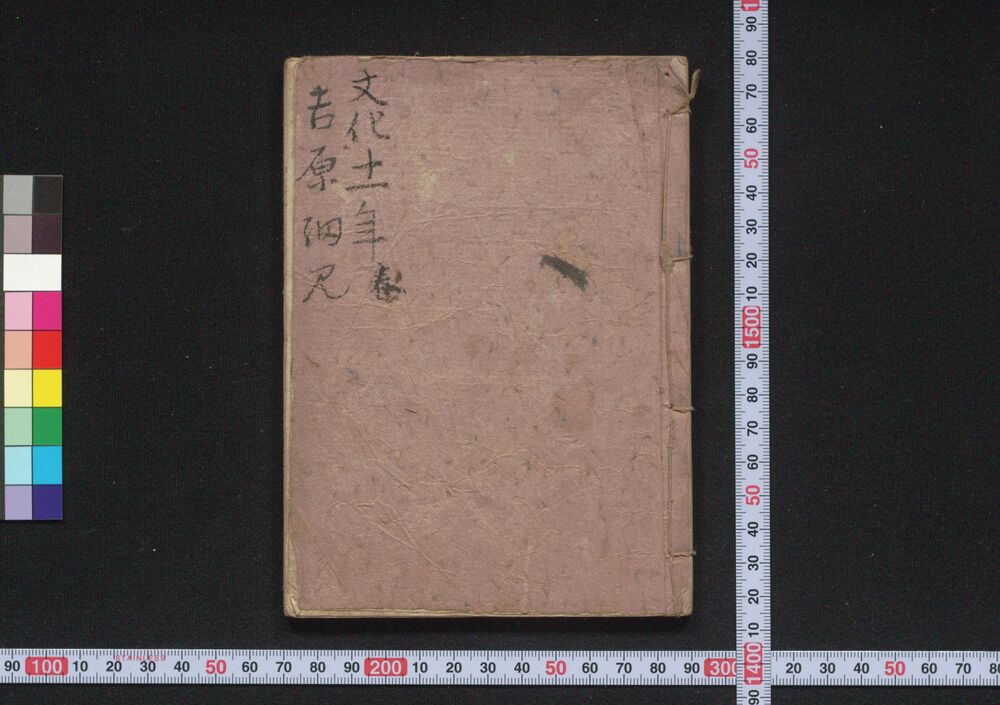 文化十二年 春
吉原細見
90 100 10 20 30 40 50 60 70 80 90 200 10 20 30 40 50 60 70 80 90 300 20 30 40 50 60 70
STAINLESS
90 80 70 60 50 40 30 20 10 1500 90 80 70 60 50 40 30 20 10 1400 90